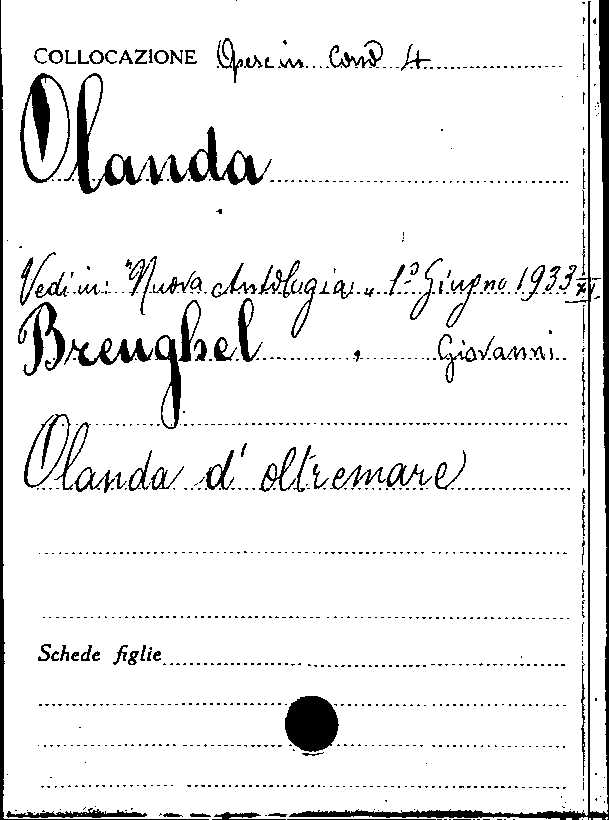 COLLOCAZIONE Opere in Cons 4
Olanda
Vedi in: "Nuova Antologia„ 1º Giugno 1933 XI
Breughel , Giovanni
Olanda d'oltremare
Schede figlie